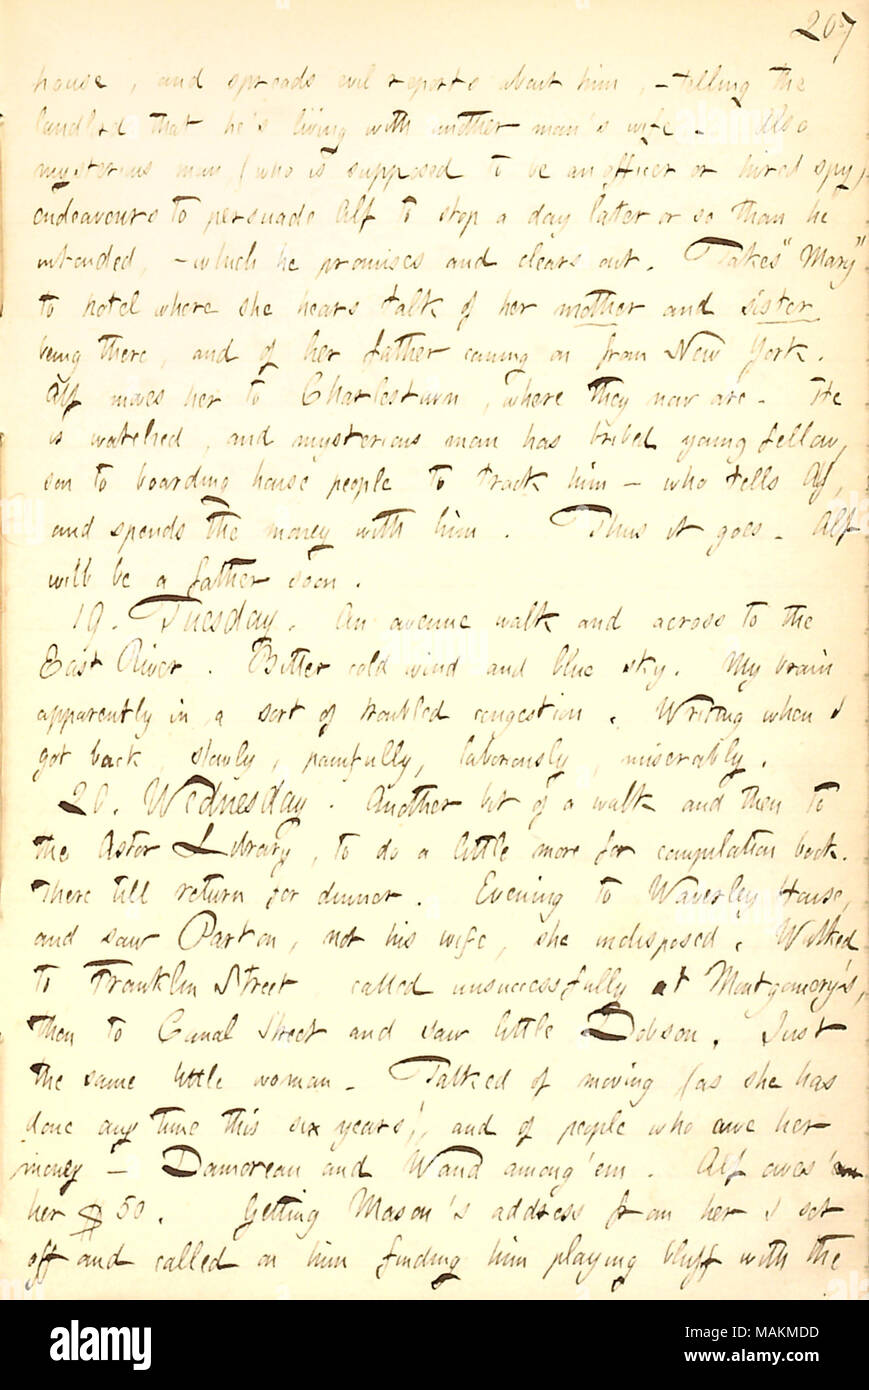 207
house, and spreads evil reports about him, - telling the
landlord that he's living with another man's wife. Also
mysterious man (who is supposed to be an officer or hired spy,
endeavours to persuade Alf to stop a day later or so than he
intended, - which he promises and clears out. Takes "Mary"
to hotel where she hears talk of her mother and sister
being there, and of her father coming on from New York.
Alf moves her to Charlestown, where they now are. He
is watched, and mysterious man has bribed young fellow,
son to boarding house people to track him - who tells Alf,
and spends the money with him. Thus it goes. Alf
will be a father soon.
19. Tuesday. An avenue walk and across to the
East River. Bitter cold wind and blue sky. My brain
apparently in a sort of troubled congestion. Writing when I
got back, slowly, painfully, laboriously, miserably.
20. Wednesday. Another bit of a walk and then to
the Astor Library, to do a little more for compilation book.
There till return for dinner. Evening to Waverley House,
and saw Parton, not his wife, she indisposed. Walked
to Franklin Street called unsuccessfully at Montgomery's,
then to Canal Street and saw little Dobson. Just
the same little woman. Talked of moving (as she has
done any time this six years!), and of people who owe her
money - Damoreau and Wand among 'em. Alf owes
her $50. Getting Mason's address from her I set
off and called on him finding him playing bluff with the
alamy
Image ID: MAKMDD
www.alamy.com